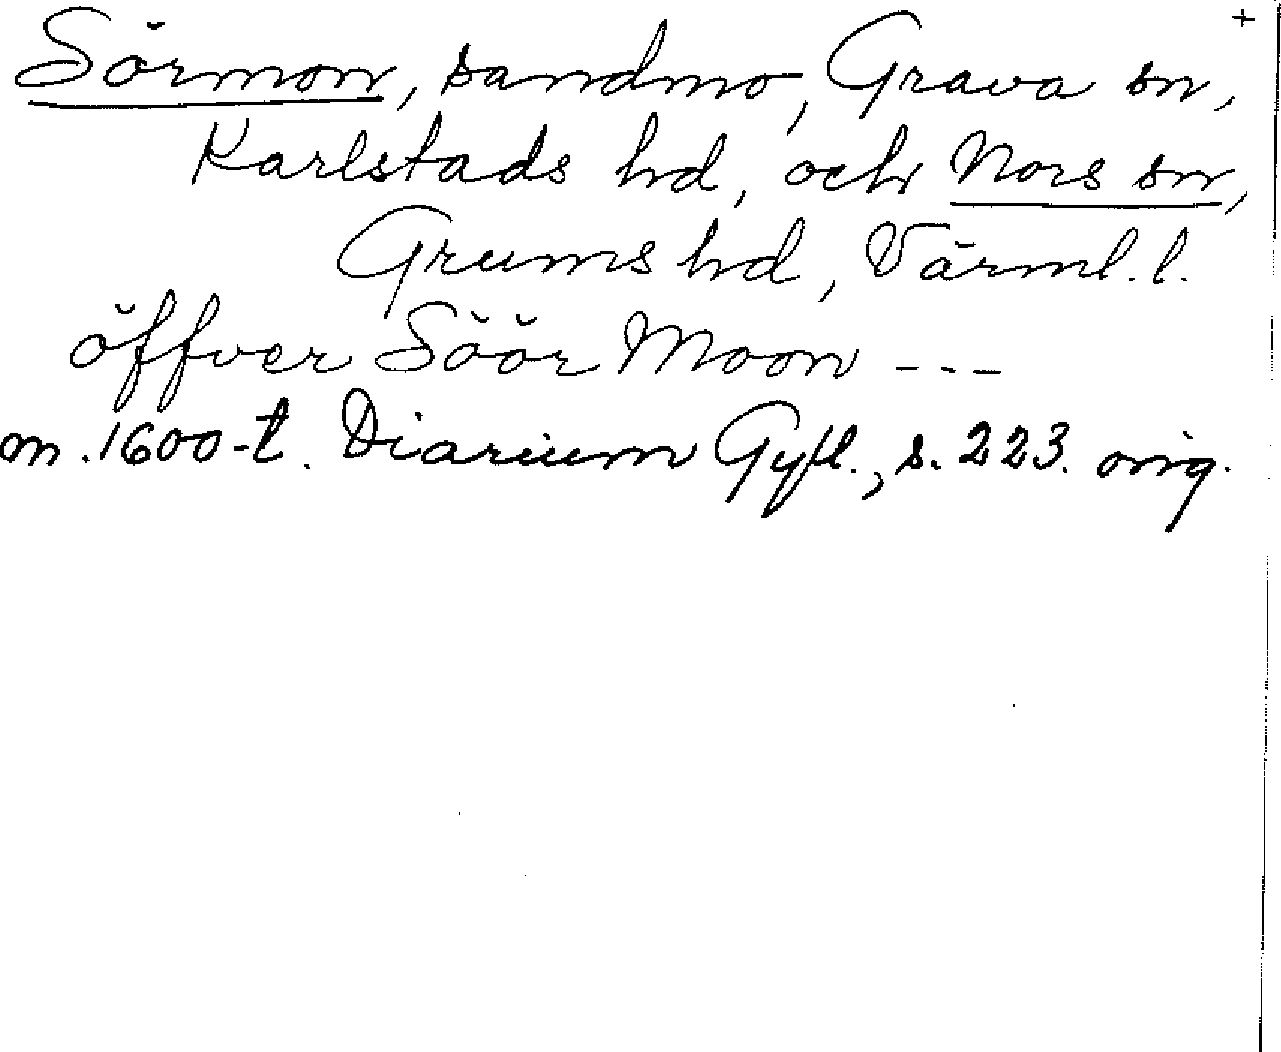 +
Sörmon, sandmo, Grava sn,
Karlstads hd, och Nors sn,
Grums hd, Värml. l.
öffver Söör Moon ---
m. 1600-t. Diarium Gyll., s. 223. orig.